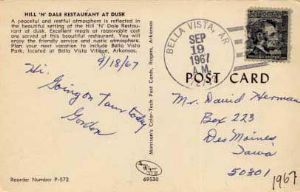 HILL 'N' DALE RESTAURANT AT DUSK
A peaceful and restful atmosphere is reflected in
the beautiful setting of the Hill 'N' Dale Restau-
rant at dusk. Excellent meals at reasonable
cost are served at this beautiful restaurant. You will
enjoy the friendly service and rustic atmosphere.
Plan your next vacation to include Bella Vista
Park, located at Bella Vista Village, Arkansas.
9/18/67
Hi.
Going on Tour today
Gordon
Reorder Number P-572
69530
BELLA VISTA, AR
SEP
19
1967
POST CARD
Mr. David Herman
Box 223
Des Moines
Iowa
50301
1967